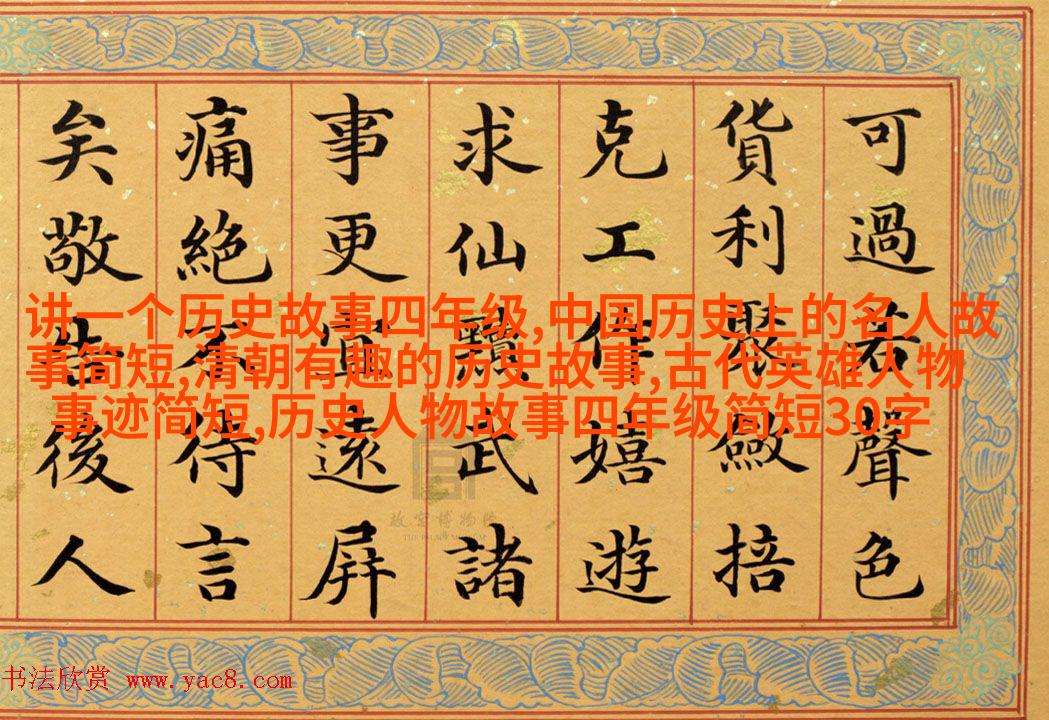 可過若聲色
貨利聚斂掊
克工作嬉遊
求仙黷武諸
事更宜遠屏
痛絕不待言
矣敬告後人
讲一个历史故事四年级,中国历史上的名人故
事简短,清朝有趣的历史故事,古代英雄人物
事迹简短,历史人物故事四年级简短30字
故宫博物院
THE PALACE MUSEUM
书法欣赏 www.yac8.com